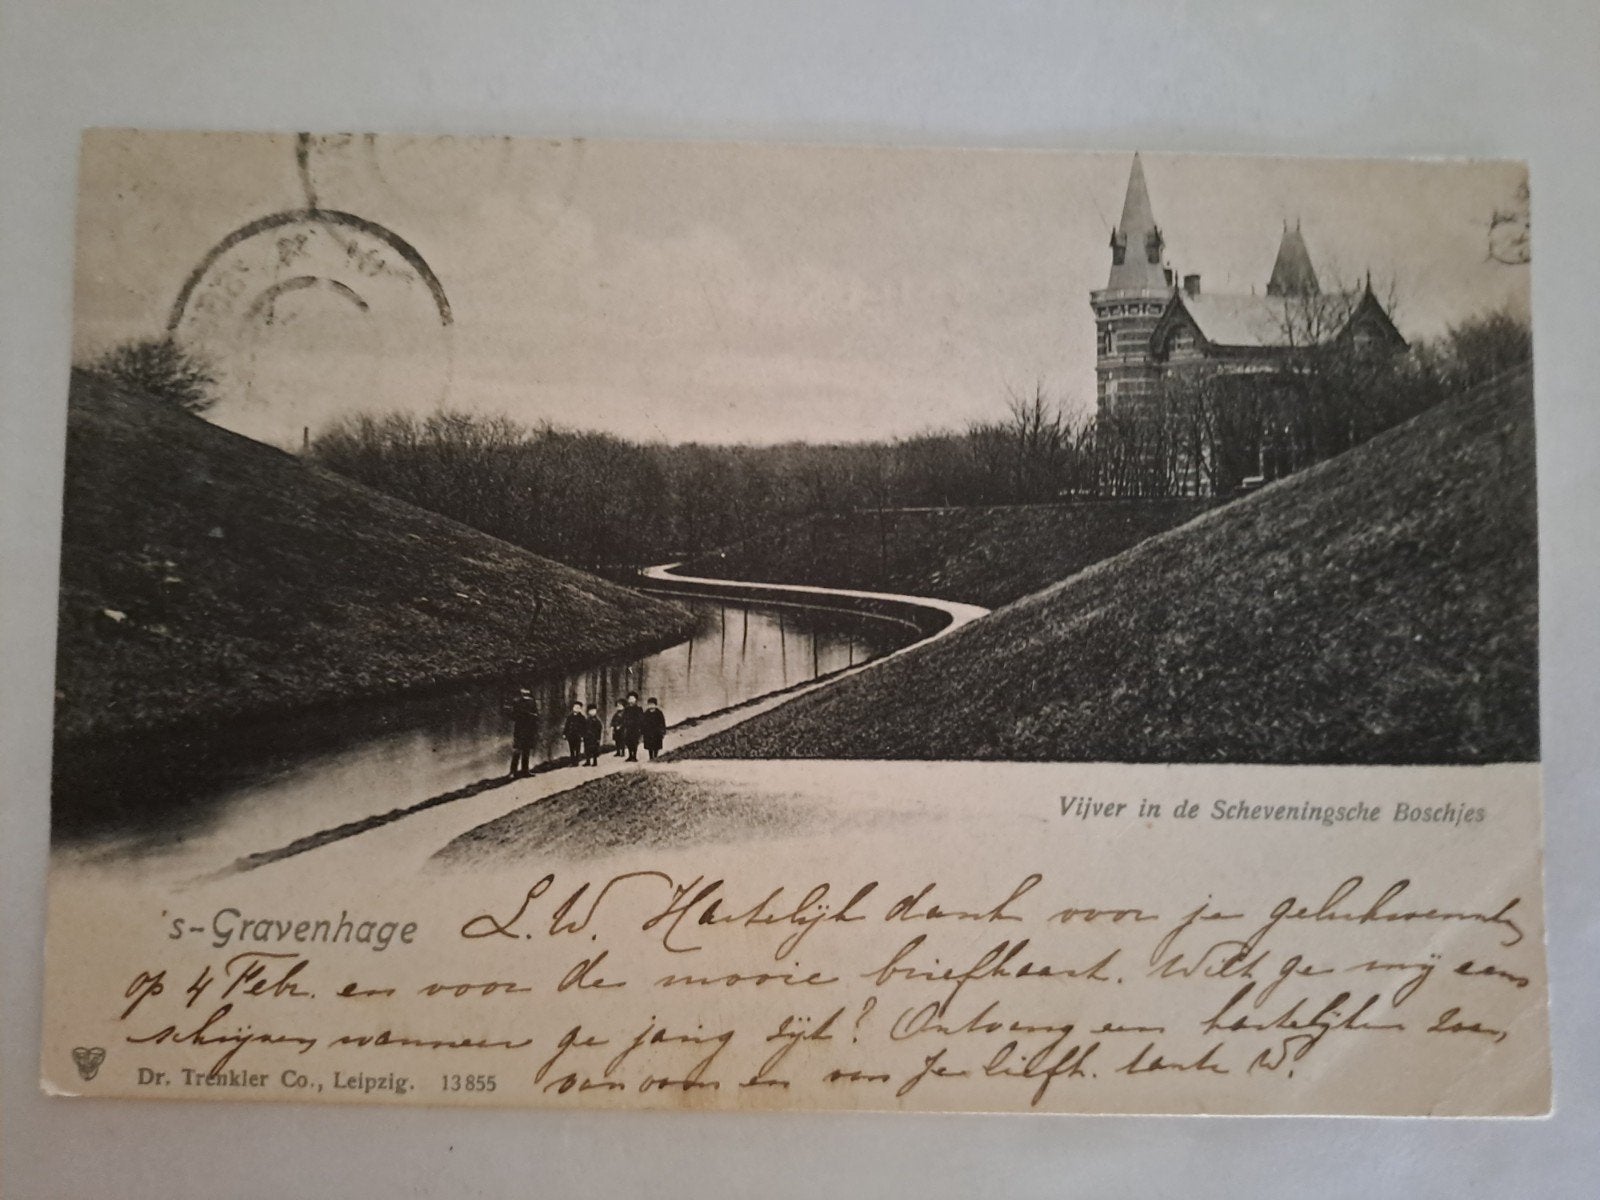 Vijver in de Scheveningsche Boschjes
's-Gravenhage
L. W. Hartelijk dank voor je gelukwensch
op 4 Febr. en voor de mooie briefkaart. Wilt ge mij eens
schrijven wanneer ge jarig zijt? Ontvang een hartelijken zoen,
van oom en van Je liefh. tante W.
Dr. Trenkler Co., Leipzig. 13855